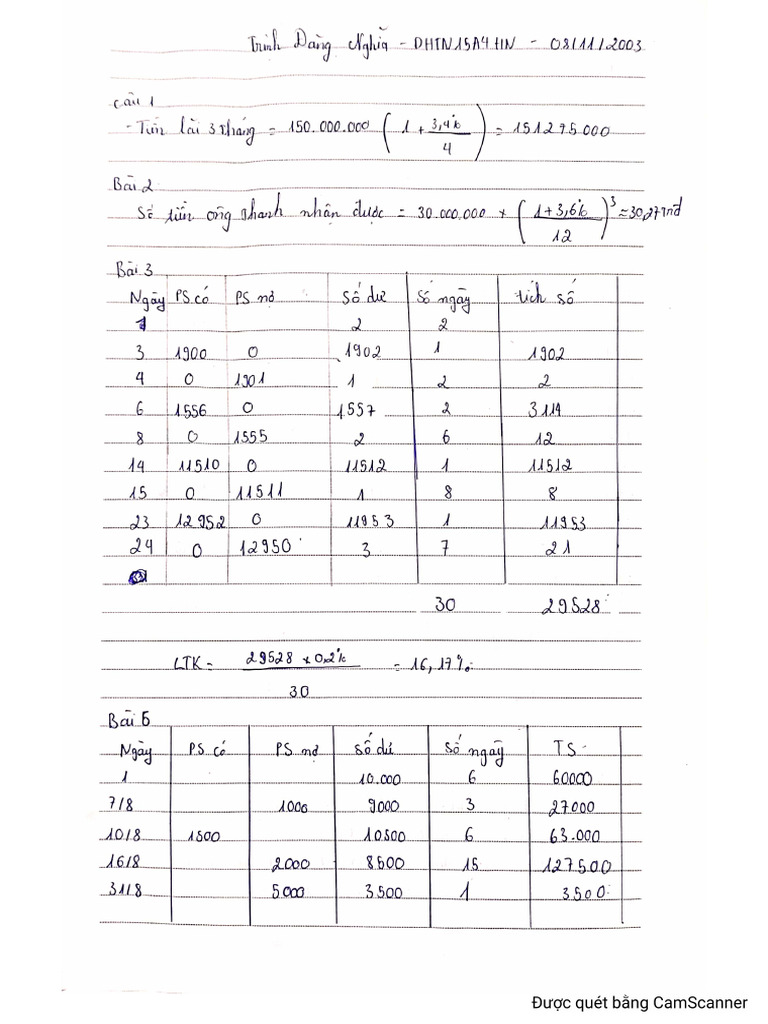 Trinh Đăng Nghĩa - DHTN15A4HN - 08/11/2003
Câu 1
- Tiền lãi 3 tháng = 150.000.000 ( 1 + 3,4% / 4 ) = 151295000
Bài 2
Số tiền ông Thanh nhận được = 30.000.000 * ( 1+3,6% / 12 )^3 = 30,27 trđ
Bài 3
Ngày PS có PS nợ Số dư Số ngày tích số
1 2 2
3 1900 0 1902 1 1902
4 0 1901 1 2 2
6 1556 0 1557 2 3114
8 0 1555 2 6 12
14 11510 0 11512 1 11512
15 0 11511 1 8 8
23 12952 0 11953 1 11953
24 0 12950 3 7 21
30 29528
LTK = 29528 * 0,2% / 30 = 16,17%
Bài 5
Ngày PS có PS nợ Số dư Số ngày TS
1 10.000 6 60000
7/8 1000 9000 3 27000
10/8 1500 10500 6 63.000
16/8 2000 8500 15 127500
31/8 5000 3500 1 3500
Được quét bằng CamScanner